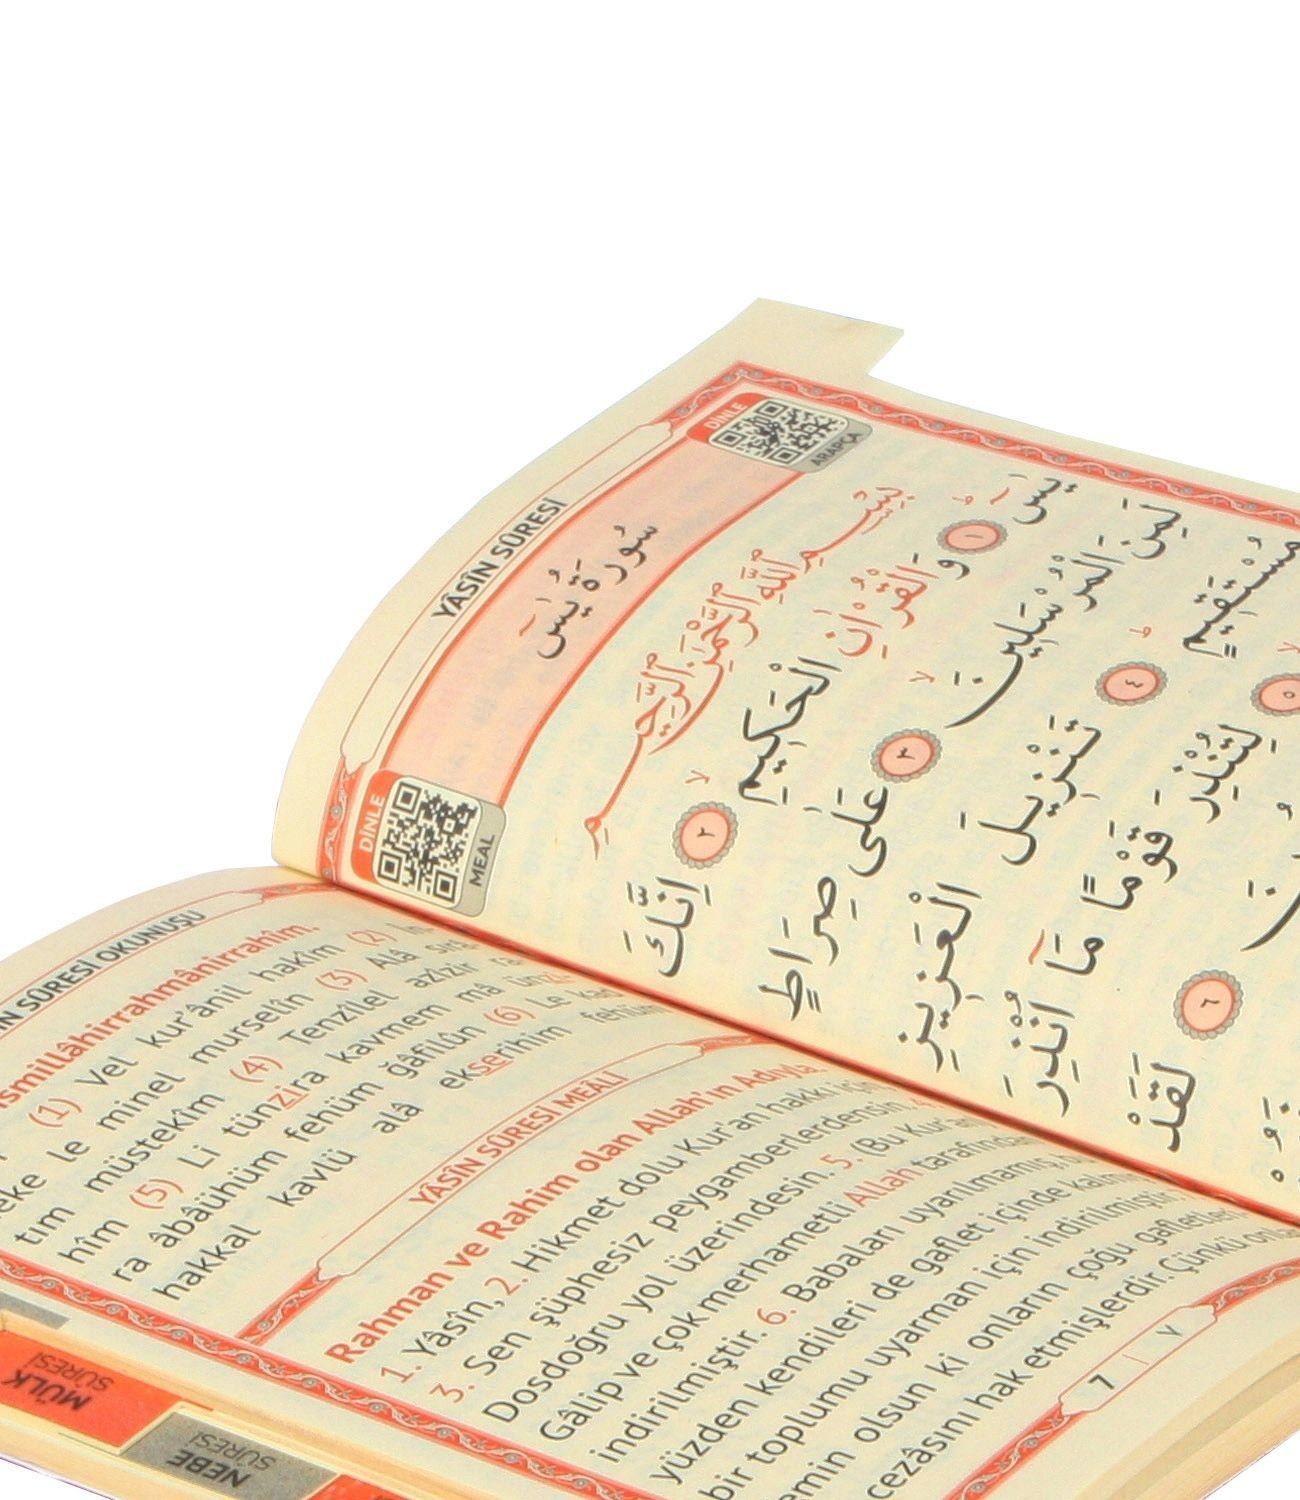 YÂSÎN SÛRESİ
DİNLE
ARAPÇA
سُورَةُ يٰسٓ
DİNLE
MEAL
بِسْمِ اللّٰهِ الرَّحْمٰنِ الرَّحِيمِ
يٰسٓ ١ وَالْقُرْاٰنِ الْحَكِيمِ ٢ اِنَّكَ
لَمِنَ الْمُرْسَلِينَ ٣ عَلٰى صِرَاطٍ
مُسْتَقِيمٍ ٤ تَنْزِيلَ الْعَزِيزِ
٥ لِتُنْذِرَ قَوْمًا مَٓا اُنْذِرَ
٦ لَقَدْ
SÛRESİ OKUNUŞU
(1) Vel kur'ânil hakîm (2) İn-
le minel murselîn (3) Alâ sırâ-
tım müstekîm (4) Tenzîlel azîzir
hîm (5) Li tünzira kavmem mâ ün
ra âbâühüm fehüm ğâfilûn (6) Le
hakkal kavlü alâ ekserihim fehüm
YÂSÎN SÛRESİ MEÂLİ
Rahman ve Rahim olan Allah'ın Adıyla.
1. Yâsîn, 2. Hikmet dolu Kur'an hakkı için
3. Sen şüphesiz peygamberlerdensin.
Dosdoğru yol üzerindesin. 5. (Bu Kur'an
Gâlip ve çok merhametli Allah tarafından
indirilmiştir. 6. Babaları uyarılmamış,
yüzden kendileri de gaflet içinde
bir toplumu uyarman için indirilmiştir.
emin olsun ki onların çoğu
cezâsını hak etmişlerdir. Çünkü
7 | ٧
MÜLK
SÛRESİ
NEBE
SÛRESİ